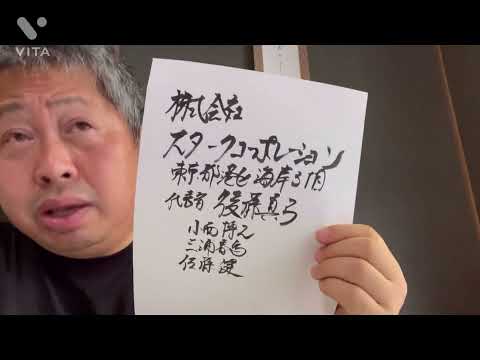 VITA
株式会社
スタークコーポレーション
東京都港区海岸3丁目
代表者 後藤真
小西
三浦春馬
佐藤健